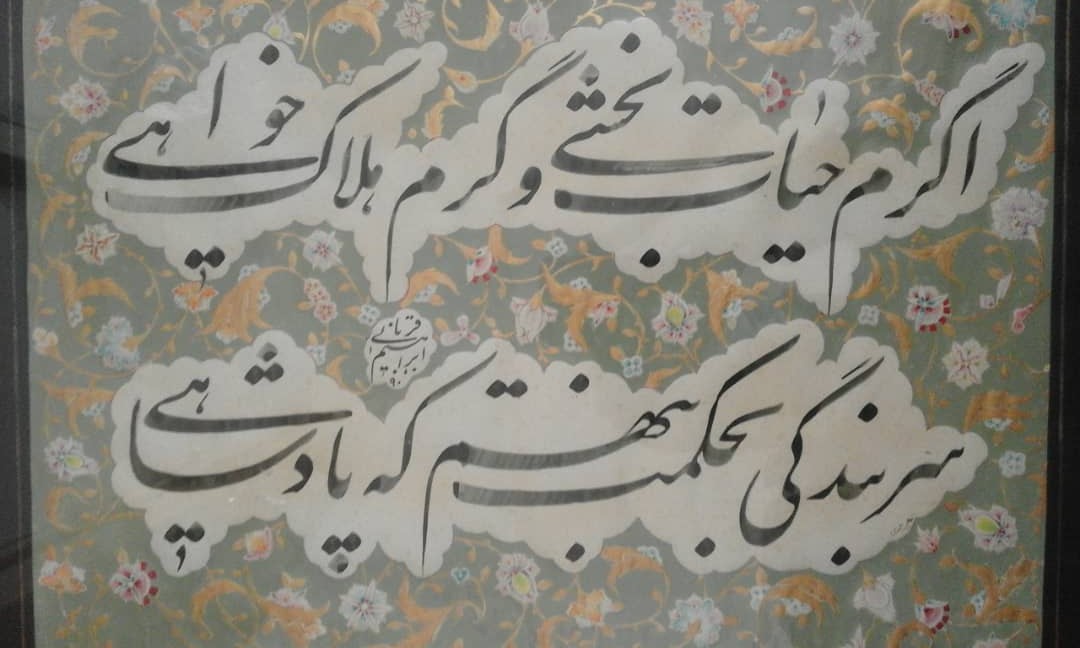 اگرم حیات بخشی و گرم هلاک خواهی
سر بندگی بحکمت بنهم که پادشاهی
ابراهیم قربانی
۹۰